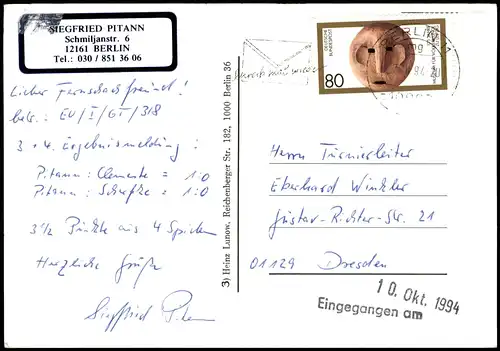 SIEGFRIED PITANN
Schmiljanstr. 6
12161 BERLIN
Tel.: 030 / 851 36 06
Lieber Fernschachfreund!
betr.: EU/I/GT/318
3 + 4. Ergebnismeldung:
Pitann : Clemente = 1:0
Pitann : Schefke = 1:0
3½ Punkte aus 4 Spielen
Herzliche Grüße
Siegfried Pitann
3) Heinz Lunow, Reichenberger Str. 182, 1000 Berlin 36
DEUTSCHE BUNDESPOST
80
BERLIN
Herrn Turnierleiter
Eberhard Winkler
Gustav-Richter-Str. 21
01129 Dresden
10. Okt. 1994
Eingegangen am